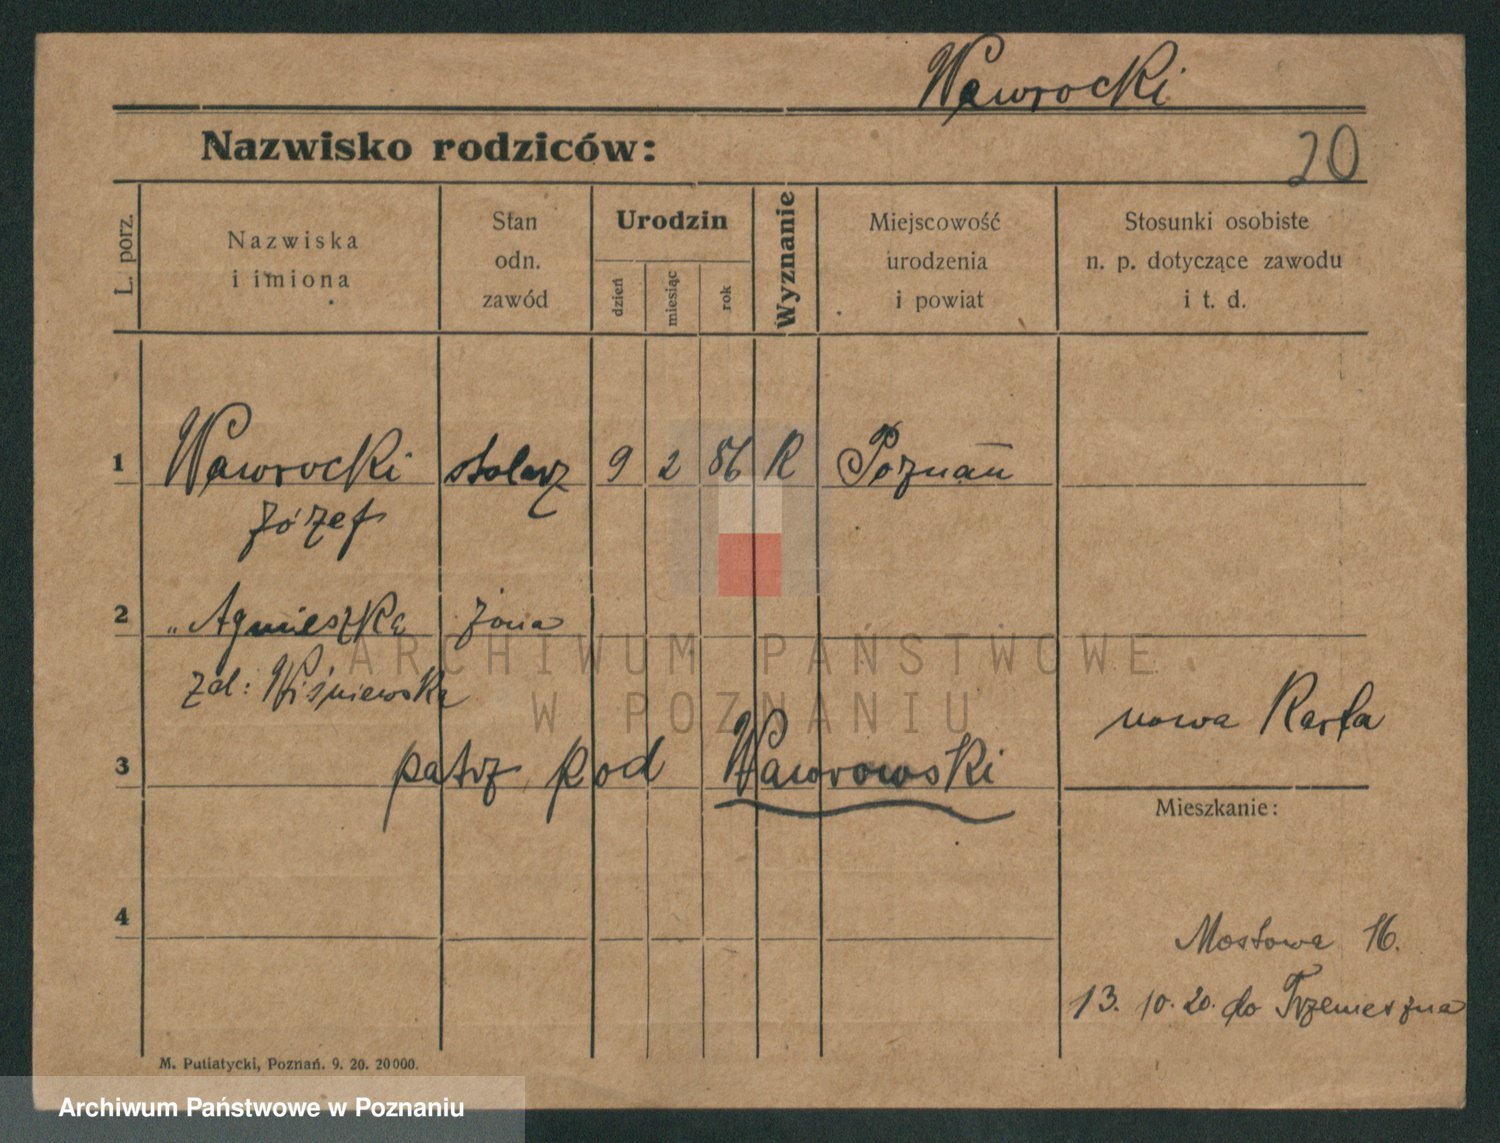 Wawrocki
Nazwisko rodziców:
20
L. porz.
Nazwiska
i imiona
Stan
odn.
zawód
Urodzin
dzień
miesiąc
rok
Wyznanie
Miejscowość
urodzenia
i powiat
Stosunki osobiste
n. p. dotyczące zawodu
i t. d.
1 Wawrocki stolarz 9 2 86 R Poznań
Józef
2 „ Agnieszka żona
zd: Wiśniewska
ARCHIWUM PAŃSTWOWE
W POZNANIU
nowa Karta
3 patrz pod Wawrowski
Mieszkanie:
4
Mostowa 16.
13. 10. 20. do Trzemeszna
M. Putiatycki, Poznań. 9. 20. 20000.
Archiwum Państwowe w Poznaniu